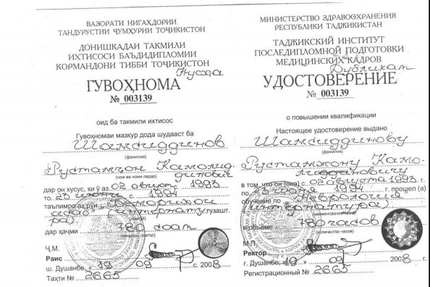 ВАЗОРАТИ НИГАҲДОРИИ
ТАНДУРУСТИИ ҶУМҲУРИИ ТОҶИКИСТОН
ДОНИШКАДАИ ТАКМИЛИ
ИХТИСОСИ БАЪДИДИПЛОМИИ
КОРМАНДОНИ ТИББИ ТОҶИКИСТОН
Нусха
ГУВОҲНОМА
№ 003139
оид ба такмили ихтисос
Гувоҳномаи мазкур дода шудааст ба
Шамсиддинов
(фамилия)
Рустамҷон Камолид
динович
дар он хусус, ки ӯ аз 02 август 1993
то 23 1994
таълимро аз рӯи
интернатура гузашт.
дар ҳаҷми 780 соат
Ҷ.М.
Раис
ш. Душанбе, 19 09 2008
Таҳти № 2665
МИНИСТЕРСТВО ЗДРАВООХРАНЕНИЯ
РЕСПУБЛИКИ ТАДЖИКИСТАН
ТАДЖИКСКИЙ ИНСТИТУТ
ПОСЛЕДИПЛОМНОЙ ПОДГОТОВКИ
МЕДИЦИНСКИХ КАДРОВ
Дубликат
УДОСТОВЕРЕНИЕ
№ 003139
о повышении квалификации
Настоящее удостоверение выдано
Шамсиддинову
(фамилия)
Рустамжону Камо-
лиддиновичу
в том, что он(она) с 02 августа 1993 г.
1994 г. прошел (а)
обучение по Неврология
интернатура
в объеме 780 часов
М.П.
Ректор
г. Душанбе, 19 09 2008
Регистрационный № 2665